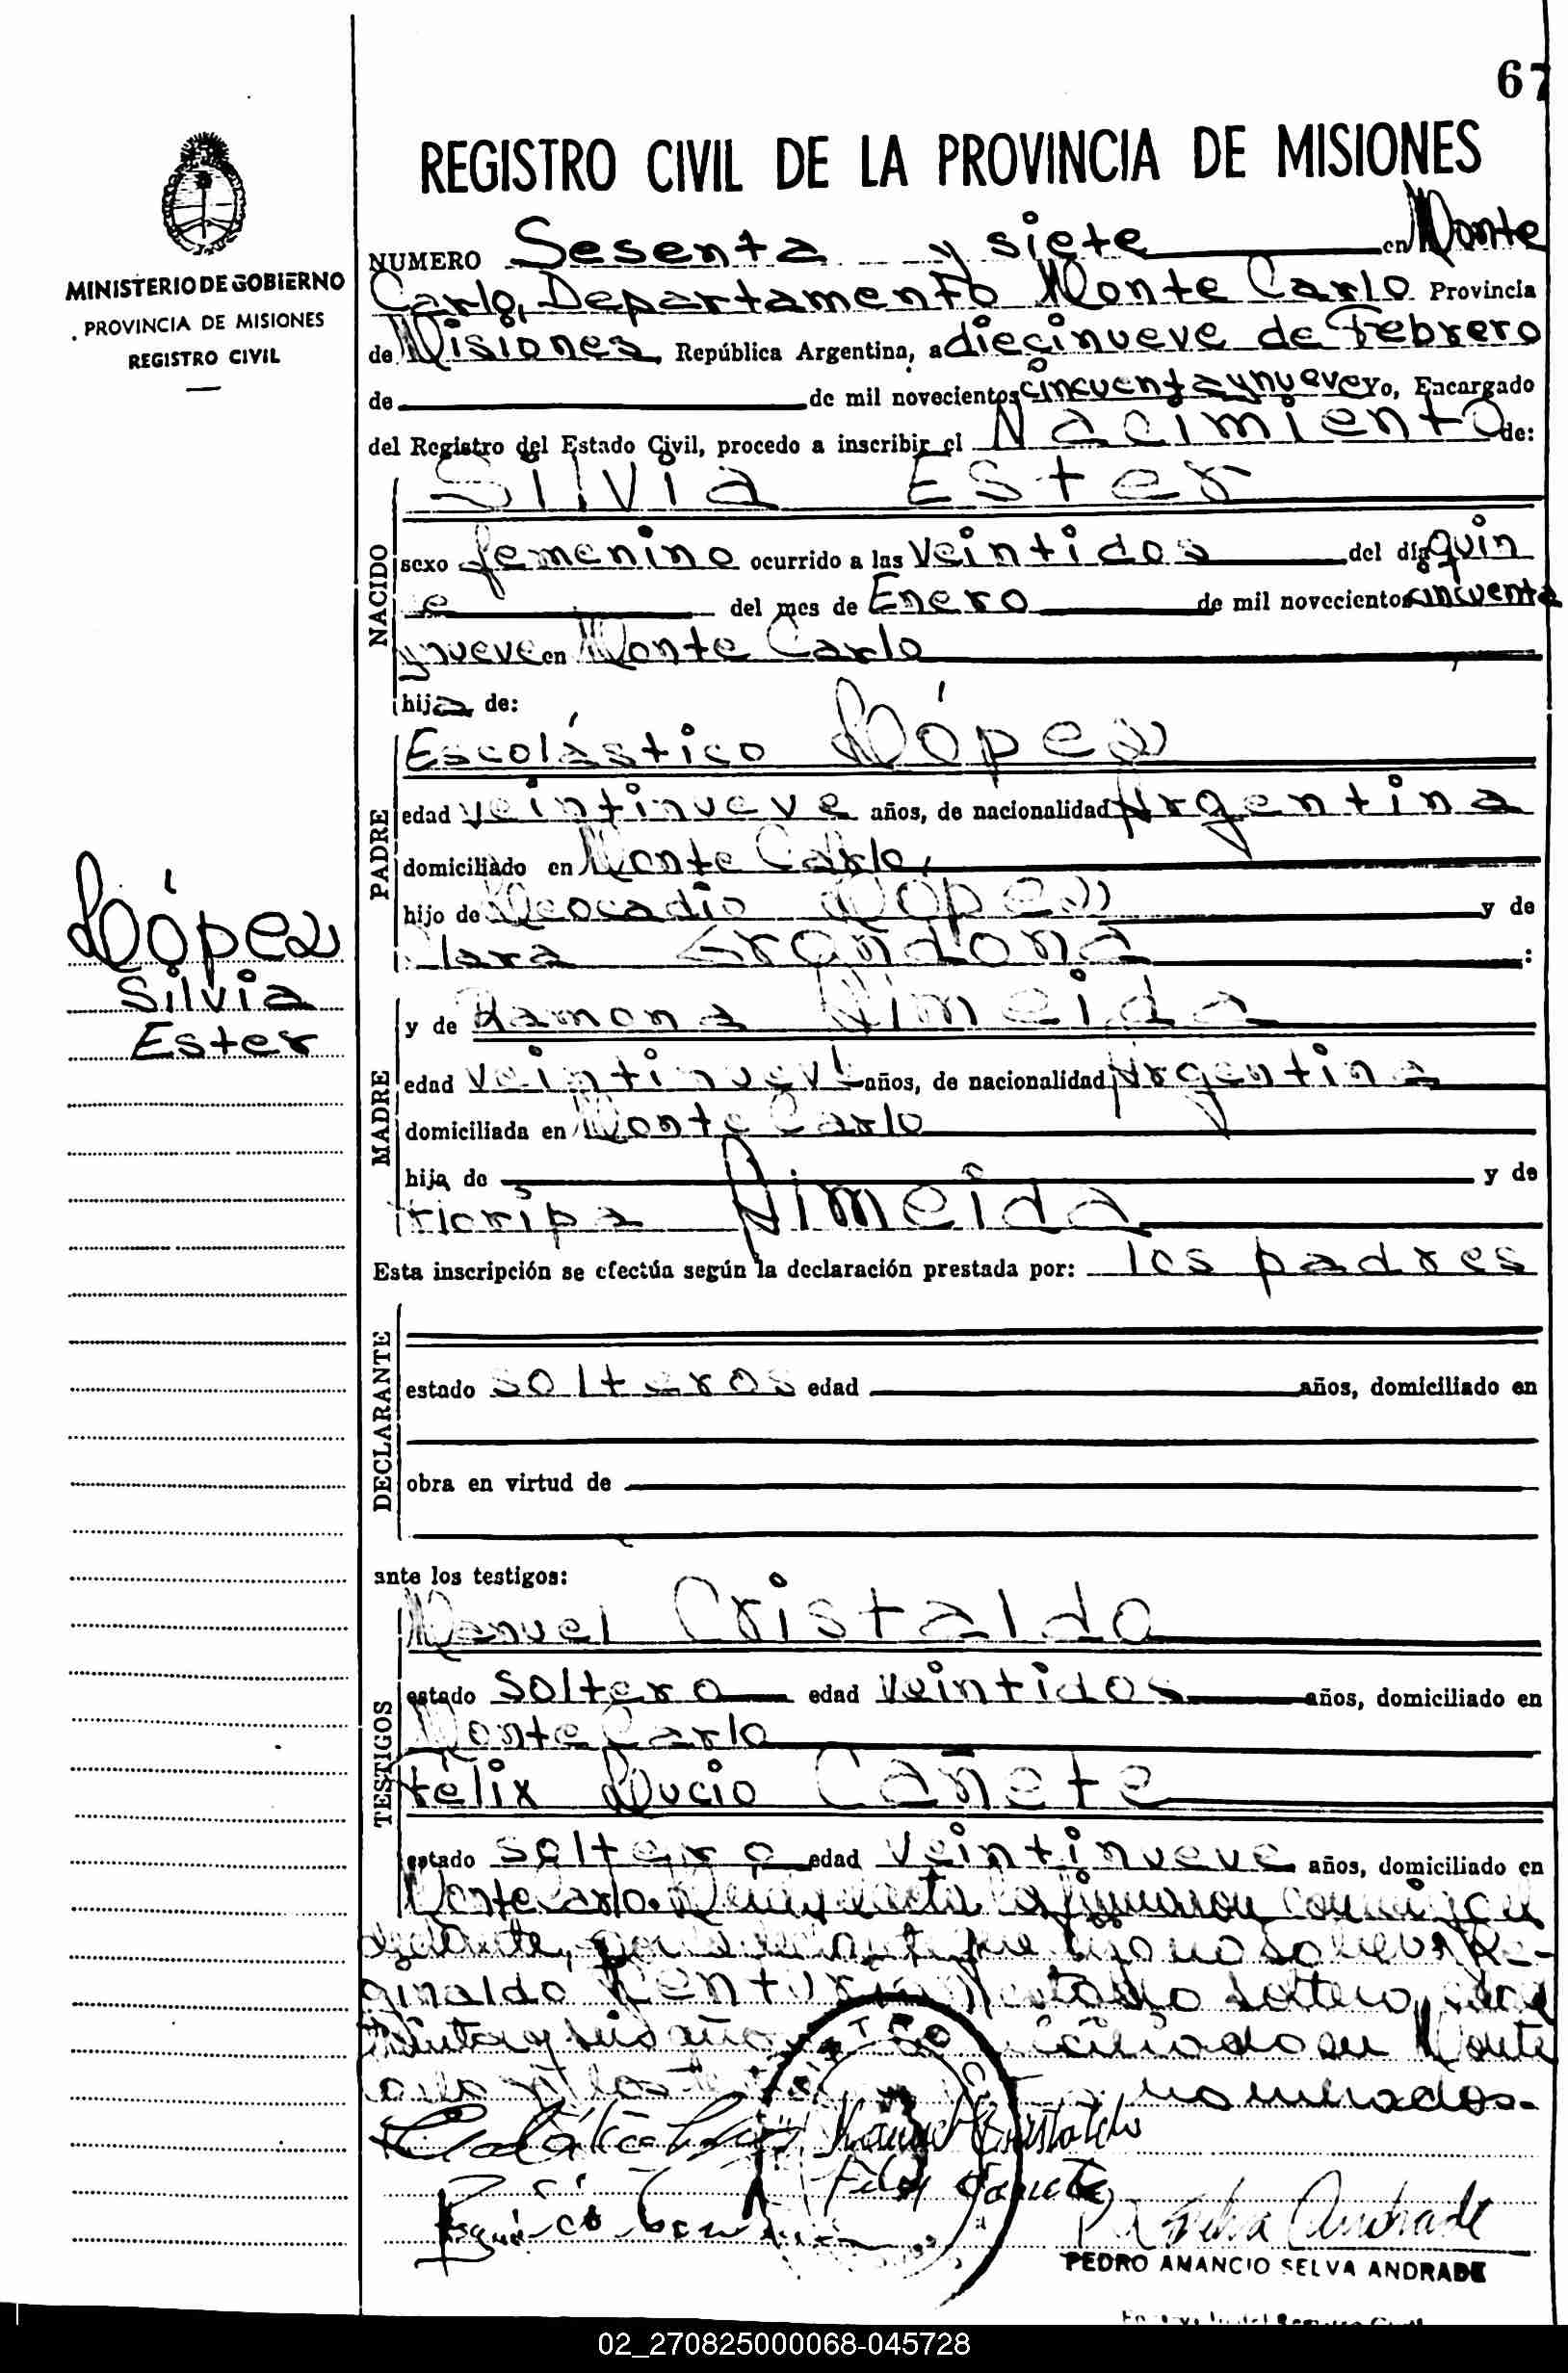 67
REGISTRO CIVIL DE LA PROVINCIA DE MISIONES
MINISTERIO DE GOBIERNO
PROVINCIA DE MISIONES
REGISTRO CIVIL
NUMERO Sesenta y siete en Monte
Carlo, Departamento Monte Carlo Provincia
de Misiones República Argentina, a diecinueve de Febrero
de de mil novecientos cincuenta y nueve yo, Encargado
del Registro del Estado Civil, procedo a inscribir el Nacimiento de:
Silvia Ester
NACIDO
sexo femenino ocurrido a las veintidos del día quin
ce del mes de Enero de mil novecientos cincuenta
y nueve en Monte Carlo
hija de:
PADRE
Escolástico López
edad veintinueve años, de nacionalidad Argentina
domiciliado en Monte Carlo,
hijo de Leocadio López y de
Clara Grandona :
López
Silvia
Ester
MADRE
y de Ramona Almeida
edad veintinueve años, de nacionalidad Argentina
domiciliada en Monte Carlo
hija de y de
Almeida
Esta inscripción se efectúa según la declaración prestada por: los padres
DECLARANTE
estado solteros edad años, domiciliado en
obra en virtud de
ante los testigos:
TESTIGOS
Manuel Cristaldo
estado soltero edad veintidos años, domiciliado en
Monte Carlo
Félix Lucio Cañete
estado soltero edad veintinueve años, domiciliado en
Monte Carlo. Leida el acta la firmaron conmigo el
declarante, por la que dijo no saber Re-
ginaldo Centurión estado soltero, edad
treinta y seis años domiciliado en Monte
Carlo y los nominados.
Manuel Cristaldo
Felix Cañete
P. A. Selva Andrade
PEDRO AMANCIO SELVA ANDRADE
02_270825000068-045728